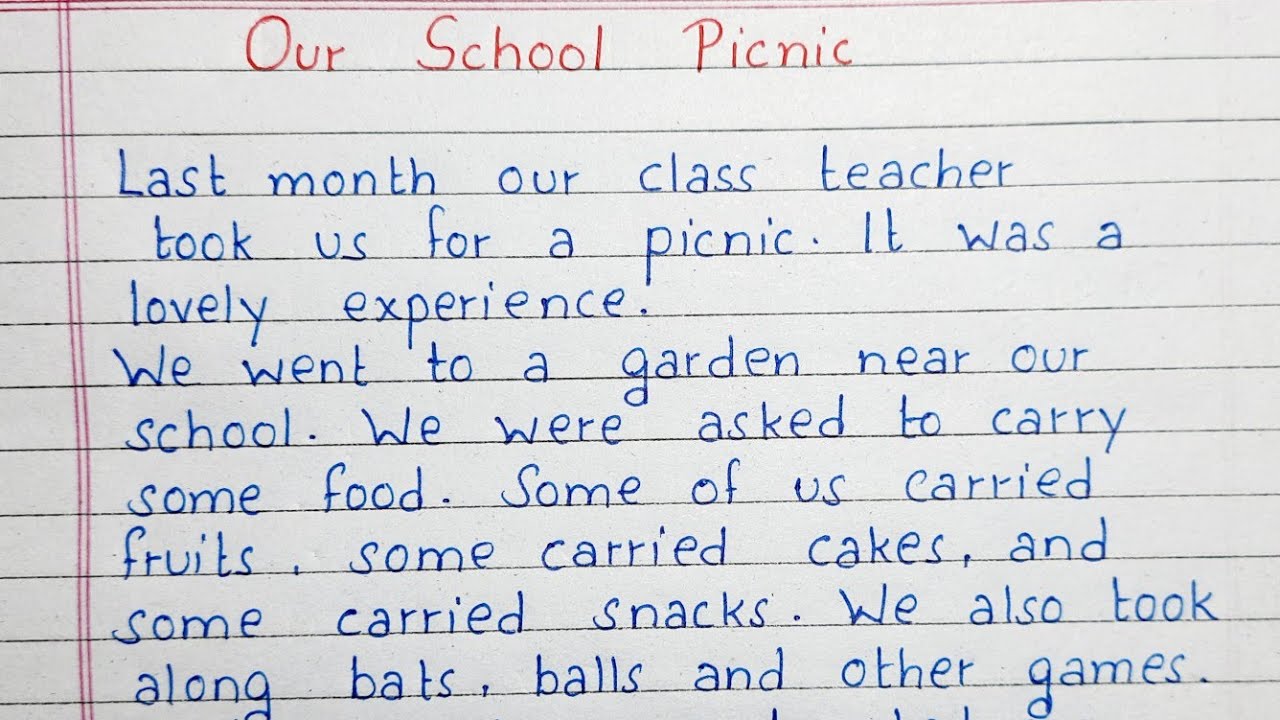 Our School Picnic
Last month our class teacher
took us for a picnic. It was a
lovely experience.
We went to a garden near our
school. We were asked to carry
some food. Some of us carried
fruits, some carried cakes, and
some carried snacks. We also took
along bats, balls and other games.